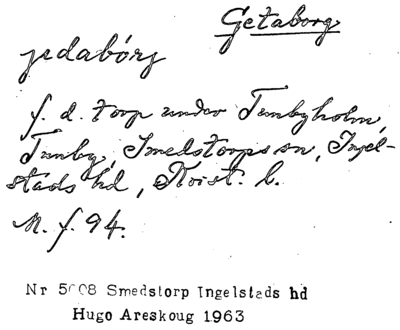 Getaborg
jedabórj
f. d. torp under Tunbyholm,
Tunby, Smedstorps sn, Ingel-
stads hd, Krist. l.
M. f. 94.
Nr 5608 Smedstorp Ingelstads hd
Hugo Areskoug 1963